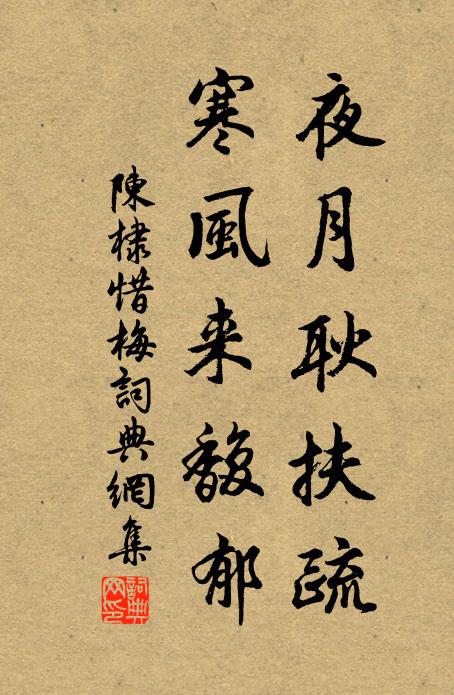 夜月耿扶疏
寒風来馥郁
陳棣惜梅詞典網集
詞典网印